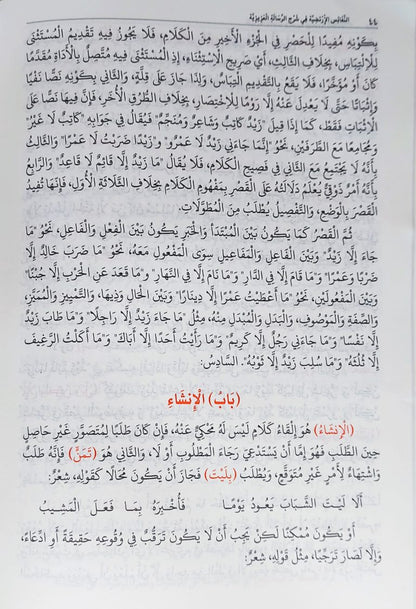 ٤٤ النَّفَائِسُ الْاِرْتَضِيَّة فِي شَرْحِ الرِّسَالَةِ الْعَزِيزِيَّة
بِكَوْنِهِ مُفِيدًا لِلْحَصْرِ فِي الْجُزْءِ الْأَخِيرِ مِنَ الْكَلَامِ، فَلَا يَجُوزُ فِيهِ تَقْدِيمُ الْمُسْتَثْنَى
لِلْاِلْتِبَاسِ، بِخِلَافِ الثَّالِثِ، أَيْ صَرِيحِ الِاسْتِثْنَاءِ، إِذِ الْمُسْتَثْنَى فِيهِ مُتَّصِلٌ بِالْأَدَاةِ مُقَدَّمًا
كَانَ أَوْ مُؤَخَّرًا، فَلَا يَقَعُ بِالتَّقْدِيمِ الْتِبَاسٌ، وَلِذَا جَازَ عَلَى قِلَّةٍ، وَالثَّانِي بِكَوْنِهِ نَصًّا نَفْيًا
وَإِثْبَاتًا حَتَّى لَا يَعْدِلَ عَنْهُ إِلَّا رَوْمًا لِلْاِخْتِصَارِ، بِخِلَافِ الطُّرُقِ الْأُخَرِ، فَإِنَّ فِيهَا نَصًّا عَلَى
الْاِثْبَاتِ فَقَطْ، كَمَا إِذَا قِيلَ "زَيْدٌ كَاتِبٌ وَشَاعِرٌ وَمُنَجِّمٌ" فَيُقَالُ فِي جَوَابِهِ "كَاتِبٌ لَا غَيْرُ"
وَمُجَامِعًا مَعَ الطَّرَفَيْنِ، نَحْوُ "إِنَّمَا جَاءَنِي زَيْدٌ لَا عَمْرٌو" وَ"زَيْدًا ضَرَبْتُ لَا عَمْرًا" وَالثَّالِثُ
بِأَنَّهُ لَا يَجْتَمِعُ مَعَ الثَّانِي فِي فَصِيحِ الْكَلَامِ، فَلَا يُقَالُ "مَا زَيْدٌ إِلَّا قَائِمٌ لَا قَاعِدٌ" وَالرَّابِعُ
بِأَنَّهُ أَمْرٌ ذَوْقِيٌّ يُعْلَمُ دَلَالَتُهُ عَلَى الْقَصْرِ بِمَفْهُومِ الْكَلَامِ بِخِلَافِ الثَّلَاثَةِ الْأُوَلِ، فَإِنَّهَا تُفِيدُ
الْقَصْرَ بِالْوَضْعِ، وَالتَّفْصِيلُ يُطْلَبُ مِنَ الْمُطَوَّلَاتِ.
ثُمَّ الْقَصْرُ كَمَا يَكُونُ بَيْنَ الْمُبْتَدَأِ وَالْخَبَرِ يَكُونُ بَيْنَ الْفِعْلِ وَالْفَاعِلِ، نَحْوُ "مَا
جَاءَ إِلَّا زَيْدٌ" وَبَيْنَ الْفَاعِلِ وَالْمَفَاعِيلِ سِوَى الْمَفْعُولِ مَعَهُ، نَحْوُ "مَا ضَرَبَ خَالِدٌ إِلَّا
ضَرْبًا وَعَمْرًا" وَ"مَا قَامَ إِلَّا فِي الدَّارِ" وَ"مَا نَامَ إِلَّا فِي النَّهَارِ" وَ"مَا قَعَدَ عَنِ الْحَرْبِ إِلَّا جُبْنًا"
وَبَيْنَ الْمَفْعُولَيْنِ، نَحْوُ "مَا أَعْطَيْتُ عَمْرًا إِلَّا دِينَارًا" وَبَيْنَ الْحَالِ وَذِيهَا، وَالتَّمْيِيزِ وَالْمُمَيَّزِ،
وَالصِّفَةِ وَالْمَوْصُوفِ، وَالْبَدَلِ وَالْمُبْدَلِ مِنْهُ، مِثْلُ "مَا جَاءَ زَيْدٌ إِلَّا رَاجِلًا" وَ"مَا طَابَ زَيْدٌ
إِلَّا نَفْسًا" وَ"مَا جَاءَنِي رَجُلٌ إِلَّا كَرِيمٌ" وَ"مَا رَأَيْتُ أَحَدًا إِلَّا أَبَاكَ" وَ"مَا أَكَلْتُ الرَّغِيفَ
إِلَّا ثُلُثَهُ" وَ"مَا سُلِبَ زَيْدٌ إِلَّا ثَوْبُهُ". السَّادِسُ:
(بَابُ) الْإِنْشَاءِ
(الْإِنْشَاءُ) هُوَ إِلْقَاءُ كَلَامٍ لَيْسَ لَهُ مَحْكِيٌّ عَنْهُ، فَإِنْ كَانَ طَلَبًا لِمُتَصَوَّرٍ غَيْرِ حَاصِلٍ
حِينَ الطَّلَبِ فَهُوَ إِمَّا أَنْ يَسْتَدْعِيَ رَجَاءَ الْمَطْلُوبِ أَوْ لَا، وَالثَّانِي هُوَ (تَمَنٍّ) فَإِنَّهُ طَلَبٌ
وَاشْتِهَاءٌ لِأَمْرٍ غَيْرِ مُتَوَقَّعٍ، وَيُطْلَبُ (بِلَيْتَ) فَجَازَ أَنْ يَكُونَ مُحَالًا كَقَوْلِهِ، شِعْرٌ:
أَلَا لَيْتَ الشَّبَابَ يَعُودُ يَوْمًا فَأُخْبِرَهُ بِمَا فَعَلَ الْمَشِيبُ
أَوْ يَكُونَ مُمْكِنًا لَكِنْ يَجِبُ أَنْ لَا يَكُونَ تَرَقُّبٌ فِي وُقُوعِهِ حَقِيقَةً أَوِ ادِّعَاءً،
وَإِلَّا لَصَارَ تَرَجِّيًا، مِثْلُ قَوْلِهِ، شِعْرٌ: